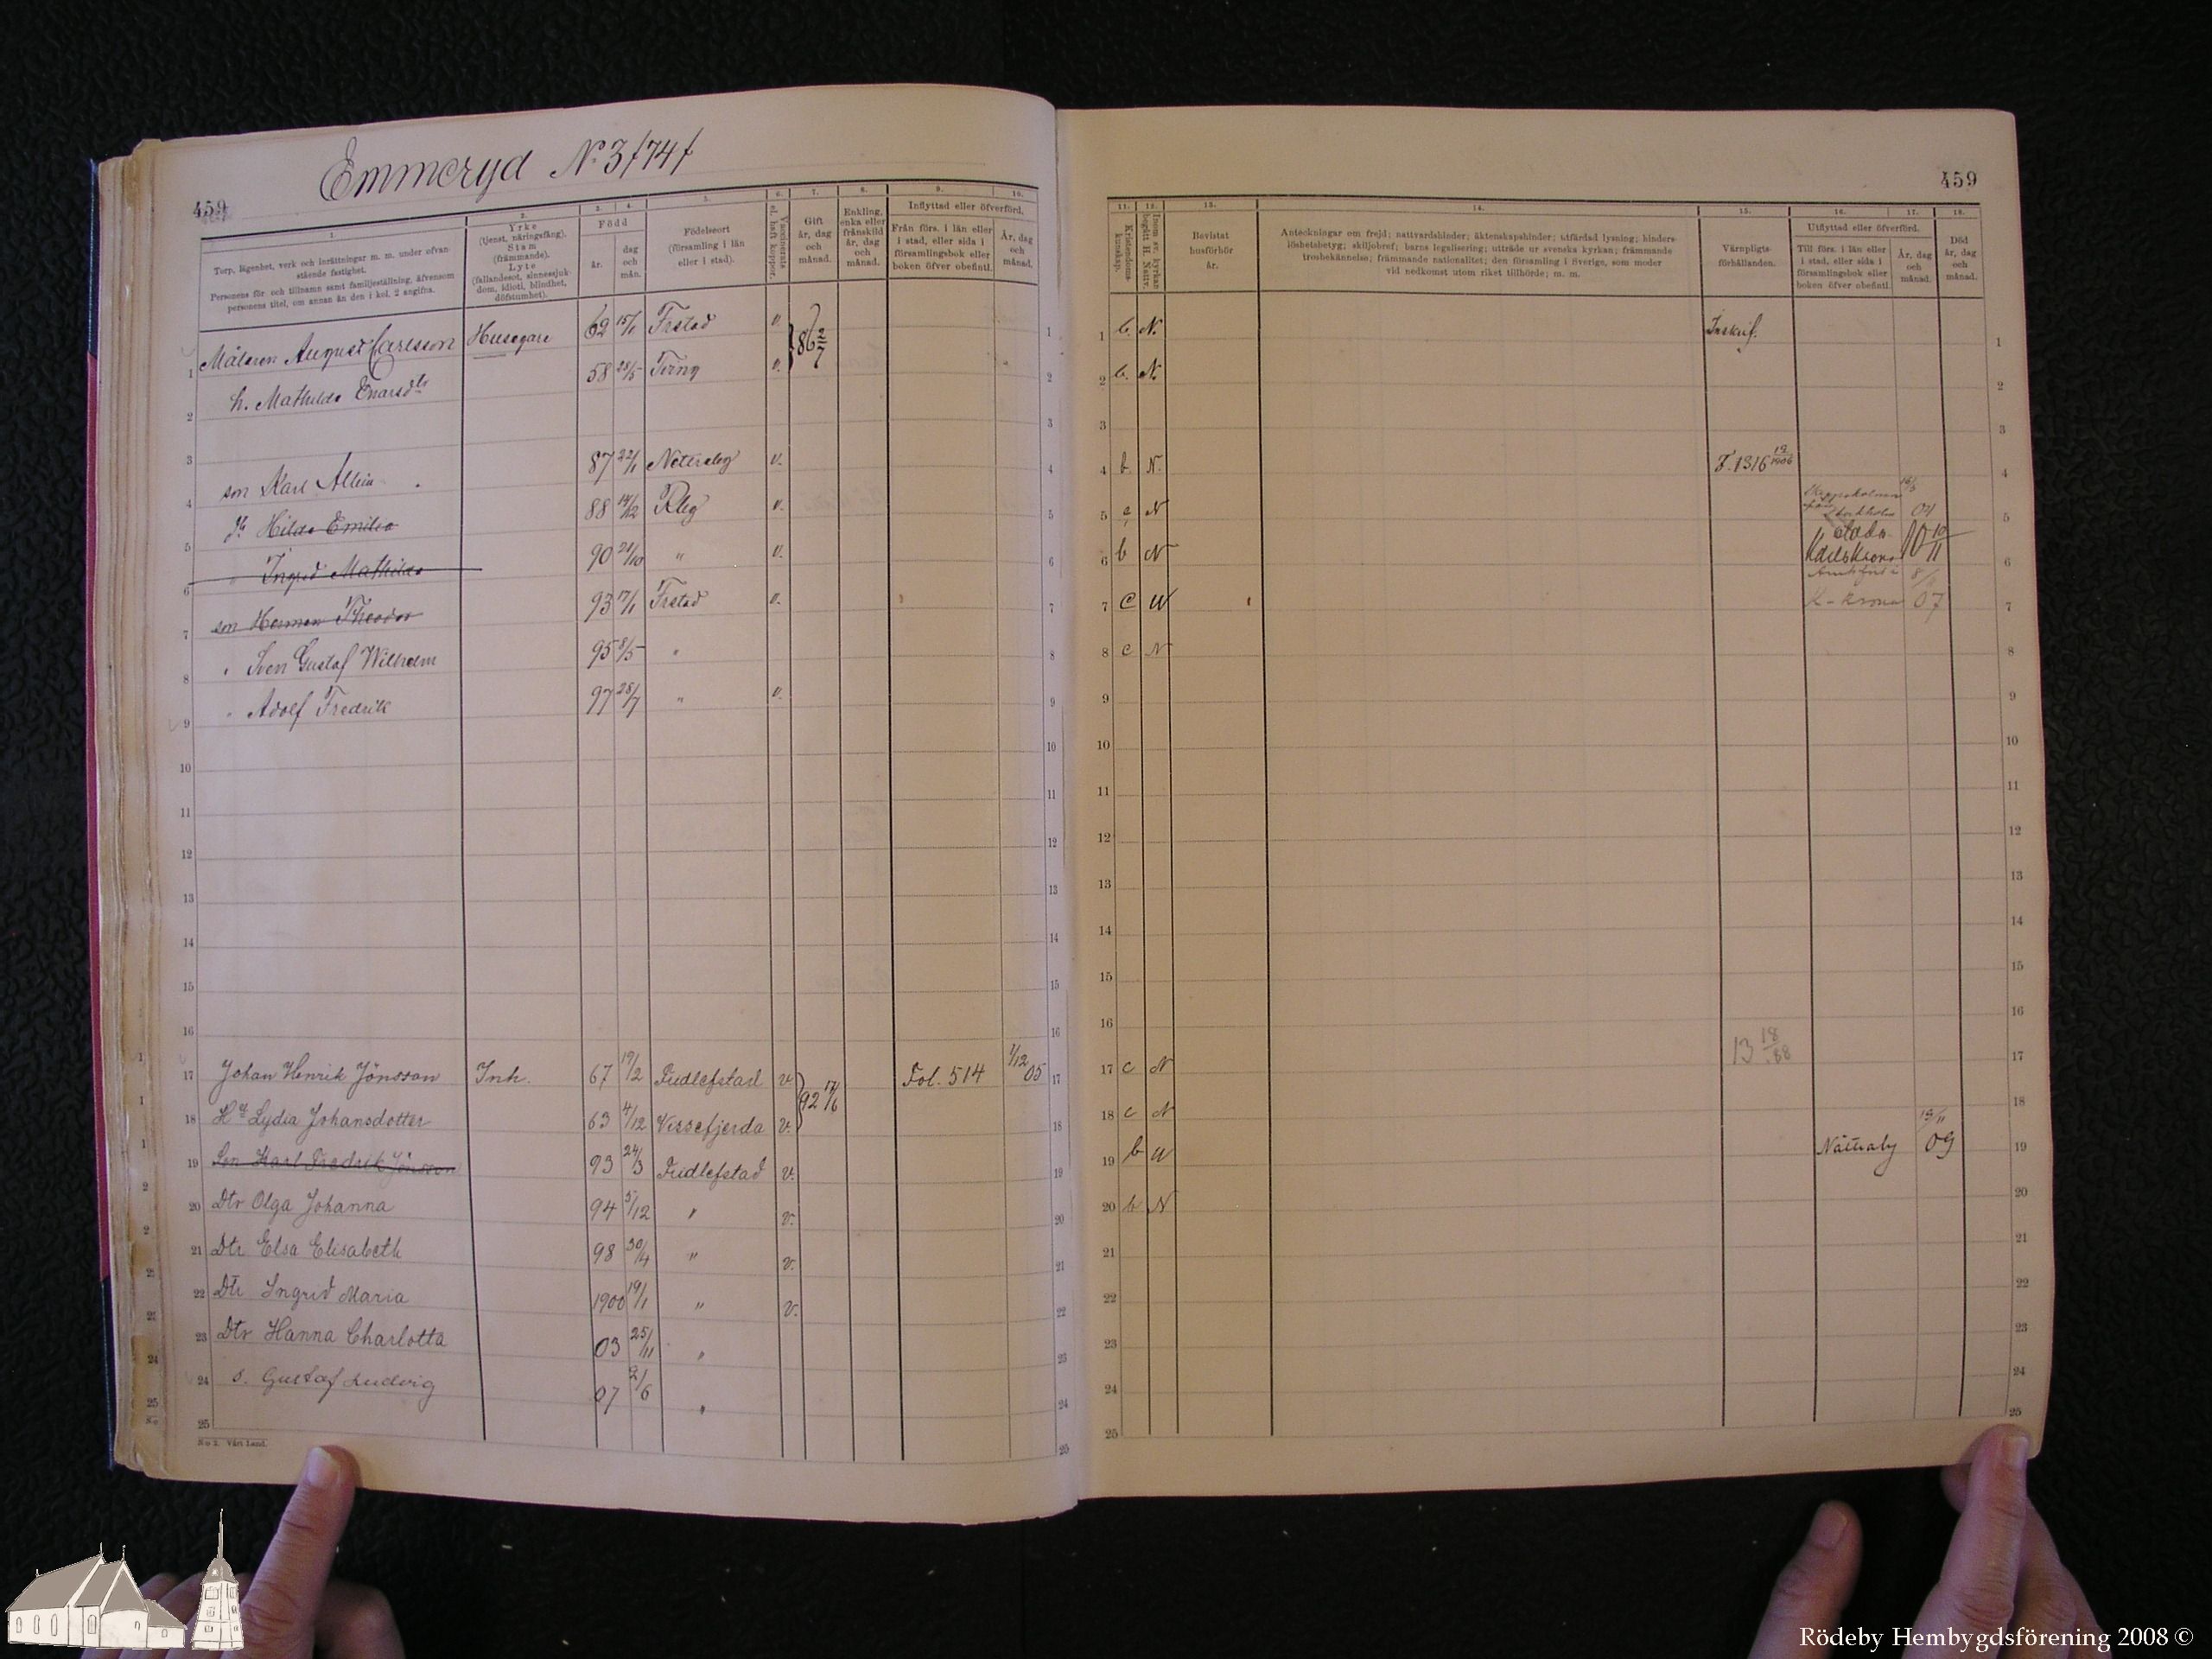 Emmeryd No 3/74f
459
459
1. 2. 3. 4. 5. 6. 7. 8. 9. 10.
Torp, lägenhet, verk och inrättningar m. m. under ofvan stående fastighet.
Personens för och tillnamn samt familjeställning, äfvensom personens titel, om annan än den i kol. 2 angifna.
Yrke (tjenst, näringsfång). Stam (främmande). Lyte (fallandesot, sinnessjukdom, idioti, blindhet, döfstumhet).
Född
år.
dag och mån.
Födelseort (församling i län eller i stad).
Vaccinerats el. haft koppor.
Gift år, dag och månad.
Enkling, enka eller frånskild år, dag och månad.
Inflyttad eller öfverförd.
Från förs. i län eller i stad, eller sida i församlingsbok eller boken öfver obefintl.
År, dag och månad.
11. 12. 13. 14. 15. 16. 17. 18.
Kristendomskunskap.
Inom sv. kyrkan begått H. Nattv.
Bevistat husförhör år.
Anteckningar om frejd; nattvardshinder; äktenskapshinder; utfärdad lysning; hinderslöshetsbetyg; skiljobref; barns legalisering; utträde ur svenska kyrkan; främmande trosbekännelse; främmande nationalitet; den församling i Sverige, som moder vid nedkomst utom riket tillhörde; m. m.
Värnpligtsförhållanden.
Utflyttad eller öfverförd.
Till förs. i län eller i stad, eller sida i församlingsbok eller boken öfver obefintl.
År, dag och månad.
Död år, dag och månad.
1 Målaren August Carlsson Husegare 62 15/1 Frstad v. 86 2/7 1 b. N. Inskrif.
2 h. Mathilda Enarsdtr 58 28/5 Tving v. 2 b. N.
3
4 son Karl Albin 87 22/1 v. 4 b N. 1316 12/1906
5 Hilda Emilia 88 14/12 v. 5 N Stockholm 04
6 " Ingrid Mathilda 90 " v. 6 b N 10 10/11
7 son Herman Theodor 93 17/1 Frstad v. 7 c N K-krona 07
8 " Sven Gustaf Wilhelm 95 8/5 " 8 c N
9 " Adolf Fredrik 97 28/7 " v. 9
10
11
12
13
14
15
16
17 Johan Henrik Jönsson Inh. 67 19/2 Fridlefstad v. 92 17/6 Fol. 514 1/12 05 17 c N 13 18/88
18 Hu Lydia Johansdotter 63 4/12 Vissefjerda v. 18 c N
19 Son Karl Fredrik Jönsson 93 24/3 Fridlefstad v. 19 b N Nättraby 19/11 09
20 Dtr Olga Johanna 94 5/12 " v. 20 b N
21 Dtr Elsa Elisabeth 98 30/4 " v. 21
22 Dtr Ingrid Maria 1900 19/1 " v. 22
23 Dtr Hanna Charlotta 03 25/11 " 23
24 s. Gustaf Ludvig 07 2/6 " 24
25
N:o 2. Vårt Land.
Rödeby Hembygdsförening 2008 ©